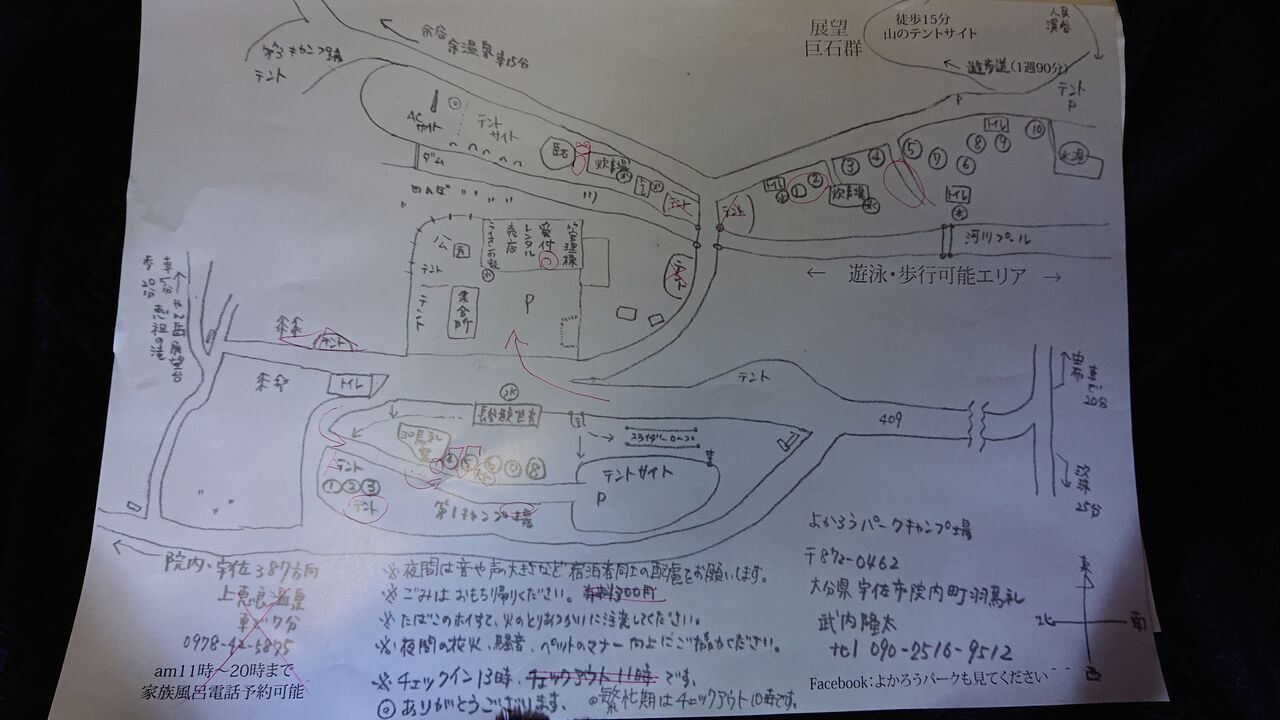 余温泉車15分
第3キャンプ場
テント
展望
巨石群
徒歩15分
山のテントサイト
遊歩道(1週90分)
テント
P
P
ACサイト
テントサイト
巨石
炊事場
水
ダム
トイレ
水
① ②
③ ④
炊事場
水
⑤ ⑦ ⑥ ⑧ ⑨ ⑩
トイレ
トイレ
水
水温
河川プール
← 遊泳・歩行可能エリア →
公園
テント
テント
集合所
売店
レンタル
受付
管理棟
P
テント
トイレ
テント
409
水
スライダーロープ
テントサイト
P
テント
① ② ③
テント
第1キャンプ場
⑧
車で20分
25分
院内、宇佐387方向
上恵良温泉
車で7分
0978-42-5875
am11時~20時まで
家族風呂電話予約可能
※ 夜間は音や声の大きさなど宿泊者同士の配慮をお願いします。
※ ごみはおもち帰りください。有料300円
※ たばこのポイすて、火のとりあつかいに注意してください。
※ 夜間の花火、騒音、ペットのマナー向上にご協力ください。
※ チェックイン13時、チェックアウト11時です。
◎ ありがとうございます。 ◎繁忙期はチェックアウト10時です。
よかろうパークキャンプ場
〒872-0462
大分県宇佐市院内町羽馬礼
武内隆太
tel 090-2516-9512
Facebook:よかろうパークも見てください
東
北
南
西